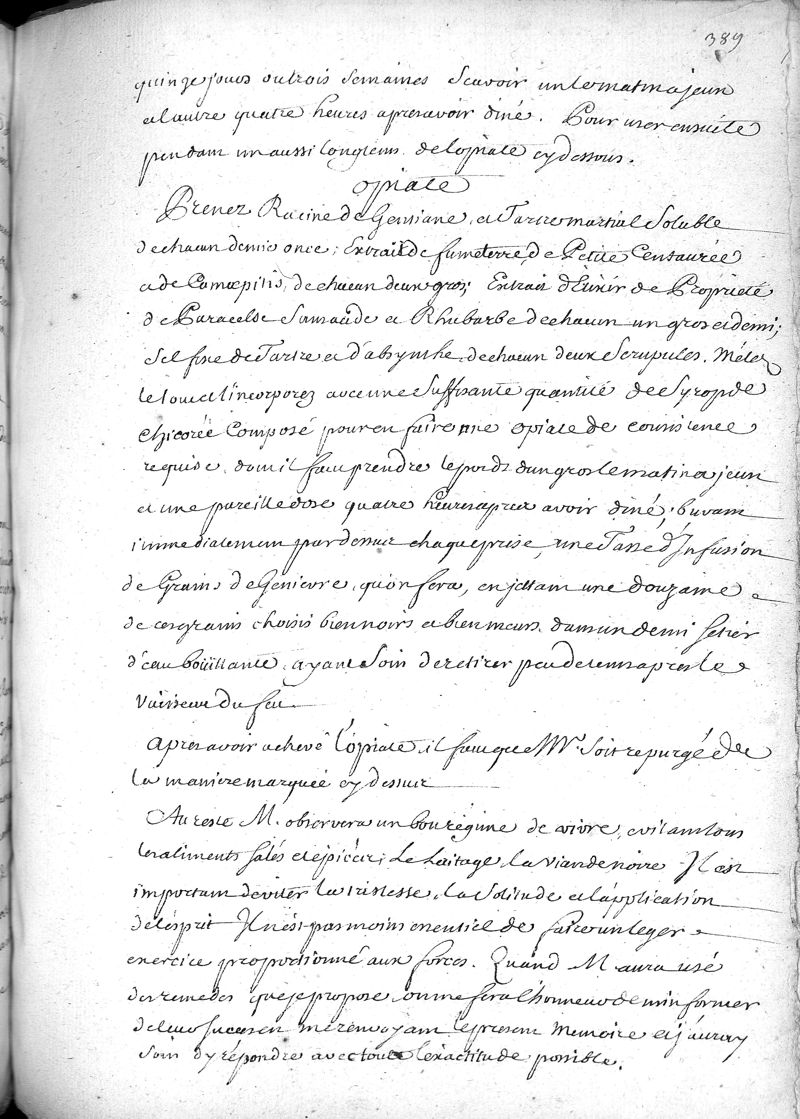 389
quinze jours ou trois semaines Scavoir un le matin a jeun
et l'autre quatre heures apres avoir diné. Pour user ensuite
pendant un aussi longtems de l'opiate cy dessous.
opiate
Prenez Racine de Gentiane, et Tartre martial Soluble
de chacun demie once; Extrait de fumeterre, de Petite Centaurée
et de Camœpitis, de chacun deux gros; Extrait d'Elixir de Proprieté
de Paracelse et Rhubarbe de chacun un gros et demi;
Sel fixe de Tartre et d'absynthe de chacun deux Scrupules. Mélez
le tout et l'incorporez avec une Suffisante quantité de Syrop de
Chicorée Composé pour en faire une opiate de consistence
requise, dont il faut prendre le poids d'un gros le matin a jeun
et une pareille dose quatre heures apres avoir diné, buvant
immediatement par dessus chaque prise, une Tasse d'Infusion
de Grains de Genievre, qu'on fera, en jettant une douzaine
de ces grains choisis bien noirs et bien meurs dans un demi setier
d'eau boüillante, ayant Soin de retirer peu de tems apres le
Vaisseau du feu
Apres avoir achevé l'opiate, il faut que Mr. Soit repurgé de
la maniere marquée cy dessus
Au reste M. observera un bon régime de vivre, evitant tous
les aliments salés et épicés; Le Laitage, la viande noire Il est
important d'eviter la tristesse, la Solitude et l'application
de l'esprit Il n'est pas moins essentiel de faire un leger
exercice proportionné aux forces. Quand M. aura usé
des remedes que je propose, on me fera l'honneur de m'informer
de leur succes en me renvoyant le present Memoire et j'auray
Soin d'y répondre avec toute l'exactitude possible.